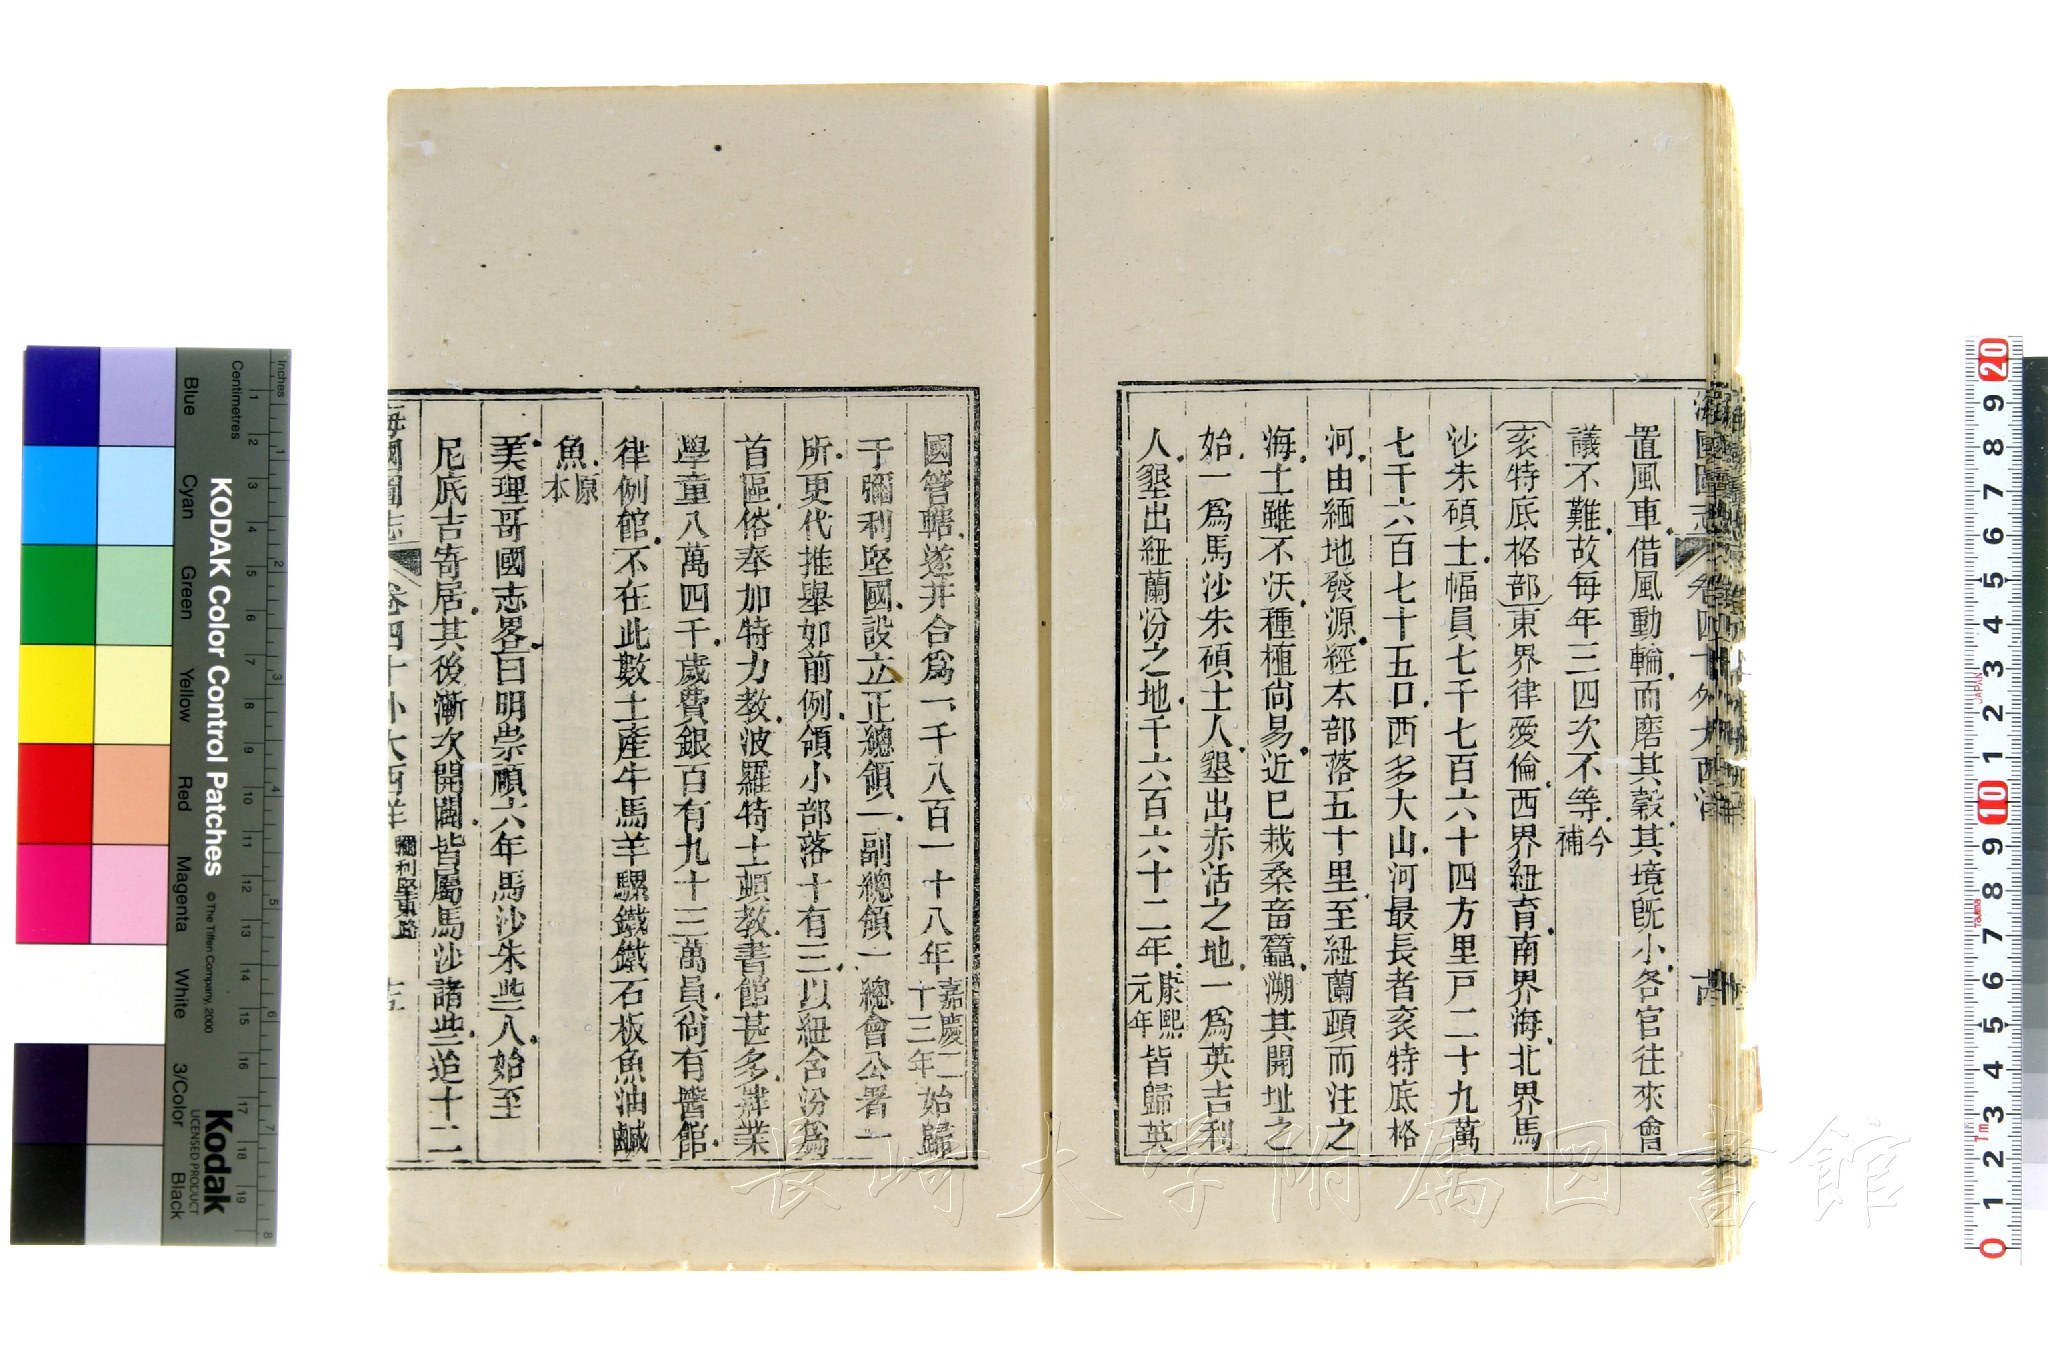 置風車借風動輪而磨其穀其境既小各官往來會
議不難故每年三四次不等今補
亥特底格部東界律愛倫西界紐育南界海北界馬
沙朱碩士幅員七千七百六十四方里戸二十九萬
七千六百七十五口西多大山河最長者亥特底格
河由緬地發源經本部落五十里至紐蘭頓而注之
海土雖不沃種植尚易近已栽桑畜蠶溯其開址之
始一爲馬沙朱碩士人墾出赤活之地一爲英吉利
人墾出紐蘭汾之地千六百六十二年康熙元年皆歸英
國管轄遂并合爲一千八百一十八年嘉慶二十三年始歸
于彌利堅國設立正總領一副總領一總會公署一
所更代推舉如前例領小部落十有三以紐含汾爲
首區俗奉加特力教波羅特士頓教書館甚多肄業
學童八萬四千歲費銀百有九十三萬員尚有醫館
律例館不在此數土產牛馬羊騾鐵鐵石板魚油鹹
魚原本
美理哥國志畧曰明崇禎六年馬沙朱些八始至
尼底吉寄居其後漸次開闢皆屬馬沙諸些追十二
海國圖志 卷四十外大西洋 彌利堅東路 十五
海國圖志 卷四十外大西洋
KODAK Color Control Patches
© The Tiffen Company, 2000
Kodak
LICENSED PRODUCT
Inches
Centimetres
Blue
Cyan
Green
Yellow
Red
Magenta
White
3/Color
Black
1 2 3 4 5 6 7 8 9 10 11 12 13 14 15 16 17 18 19
1 2 3 4 5 6 7 8
20 9 8 7 6 5 4 3 2 1 10 9 8 7 6 5 4 3 2 1 0
JAPAN
Tajima
長崎大学附属図書館